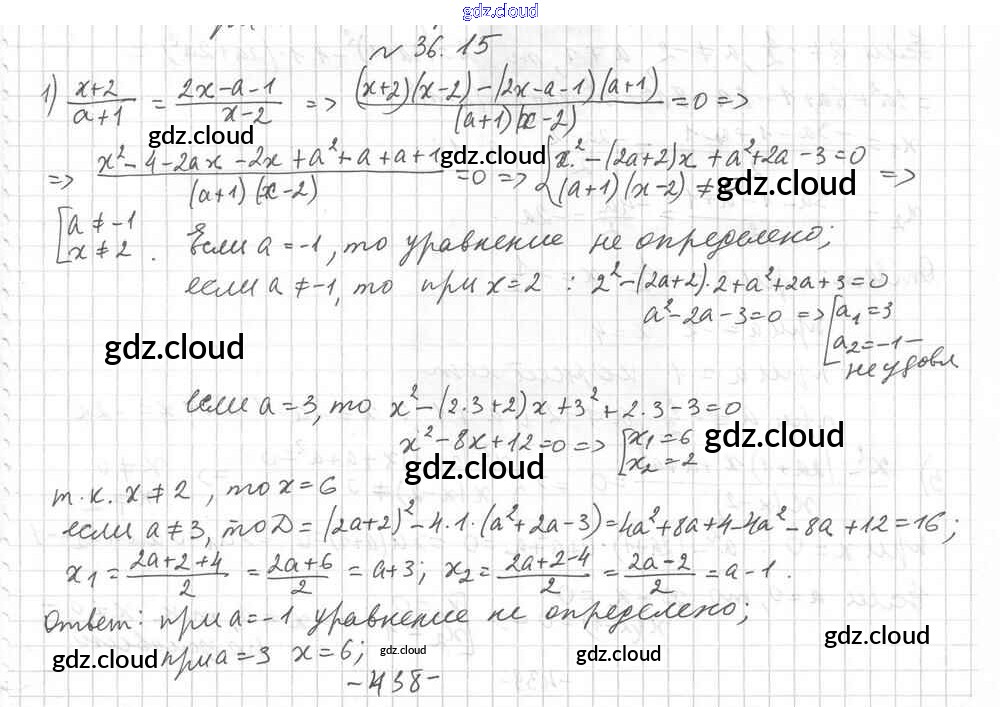 gdz.cloud
№ 36.15
1) (x+2)/(a+1) = (2x-a-1)/(x-2) => ((x+2)(x-2)-(2x-a-1)(a+1))/((a+1)(x-2)) = 0 =>
gdz.cloud
=> (x²-4-2ax-2x+a²+a+a+1)/((a+1)(x-2)) = 0 => { x²-(2a+2)x+a²+2a-3=0 (a+1)(x-2)≠ =>
gdz.cloud gdz.cloud
[ a≠-1 x≠2 . Если a=-1, то уравнение не определено;
если a≠-1, то при x=2 : 2²-(2a+2)·2+a²+2a+3=0
a²-2a-3=0 => [ a₁=3 a₂=-1 - не удовл
gdz.cloud
если a=3, то x²-(2·3+2)x+3²+2·3-3=0
x²-8x+12=0 => [ x₁=6 x₂=2
gdz.cloud gdz.cloud
т.к. x≠2, то x=6
если a≠3, то D=(2a+2)²-4·1·(a²+2a-3)=4a²+8a+4-4a²-8a+12=16;
x₁ = (2a+2+4)/2 = (2a+6)/2 = a+3; x₂ = (2a+2-4)/2 = (2a-2)/2 = a-1.
Ответ: при a=-1 уравнение не определено;
gdz.cloud при a=3 x=6; gdz.cloud gdz.cloud gdz.cloud
-438-